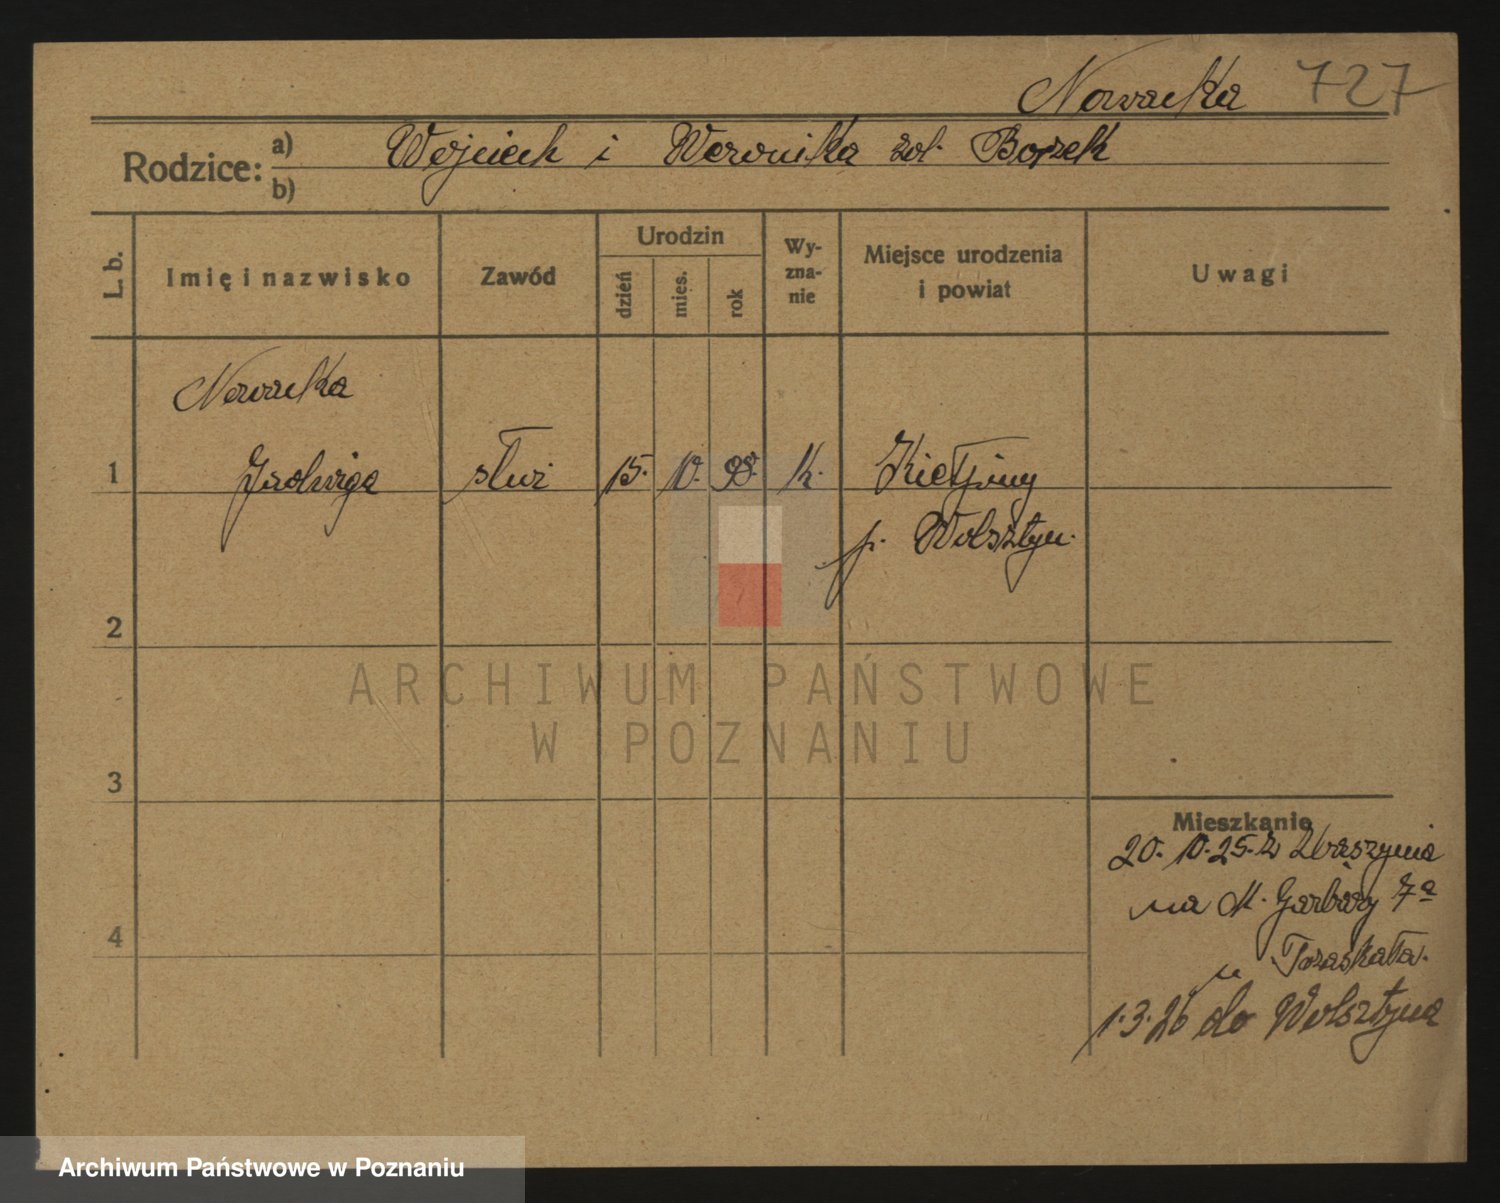 Nowacka 727
Rodzice: a) Wojciech i Weronika zol. Borzek
b)
L. b. Imię i nazwisko Zawód Urodzin dzień mies. rok Wy-zna-nie Miejsce urodzenia i powiat Uwagi
Nowacka
1 Jadwiga służ 15. 10. 98. k. Kiełpiny
p. Wolsztyn.
2
3
4
Mieszkanie
20. 10. 25. z Zbąszynia
na M. Garbary 7a
u Toraskała.
1. 3. 26 do Wolsztyna
ARCHIWUM PAŃSTWOWE
W POZNANIU
Archiwum Państwowe w Poznaniu